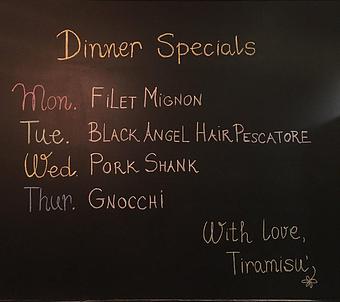 Dinner Specials
Mon. Filet Mignon
Tue. Black Angel Hair Pescatore
Wed. Pork Shank
Thur. Gnocchi
With love,
Tiramisu'